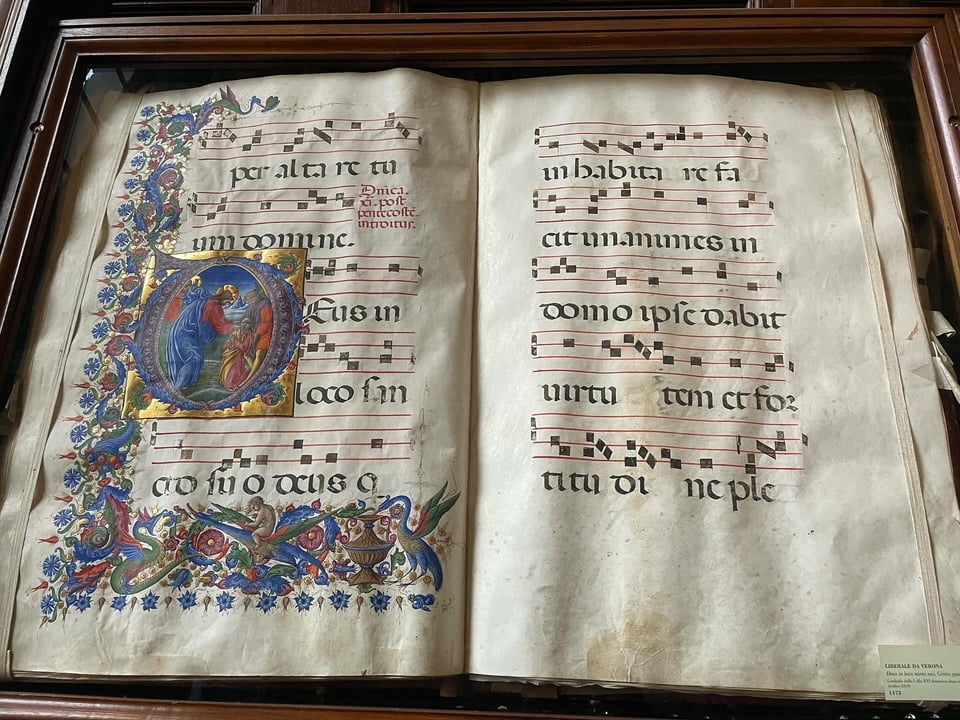 per al ta re tu
um domine.
Dnica.
xi. post
pentecoste.
introitus.
Eus in
loco san
cto su o deus q
inhabita re fa
cit unanimes in
domo ipse dabit
uirtu tem et for
titu di ne ple
LIBERALE DA VERONA
Deus in loco sancto suo, Cristo
1473